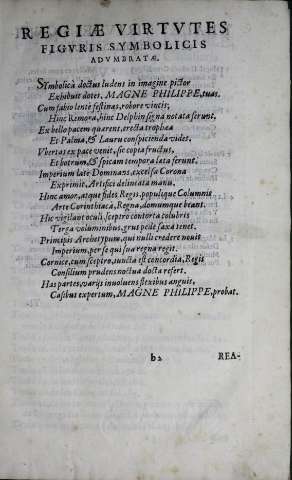 REGIÆ VIRTVTES
FIGVRIS SYMBOLICIS
ADVMBRATÆ.
SYmbolica doctus ludens in imagine pictor
Exhibuit dotes, MAGNE PHILIPPE, tuas.
Cum fabio lentè festinas, robore vincis,
Hinc Remora, hinc Delphin signa notata ferunt.
Ex bello pacem quærent, erecta trophæa
Et Palma, & Lauru conspicienda vides.
Vbertas ex pace venit, sic copia fructus,
Et botrum, & spicam tempora lata ferunt.
Imperium latè Dominans, excelsa Corona
Exprimit, Artifici delineata manu.
Hinc amor, atque fides Regis, populique Columnis
Arte Corinthiaca, Regna, domumque beant.
Hic vigilant oculi, sceptro contorta colubris
Terga voluminibus, grus pede saxa tenet.
Principis Archetypum, qui nulli credere nouit
Imperium, per se qui sua regna regit.
Cornice, cum sceptro, iuncta est concordia, Regis
Consilium prudens noctua docta refert.
Has partes, varijs inuoluens flexibus anguis,
Casibus expertum, MAGNE PHILIPPE, probat.
b2 REA-